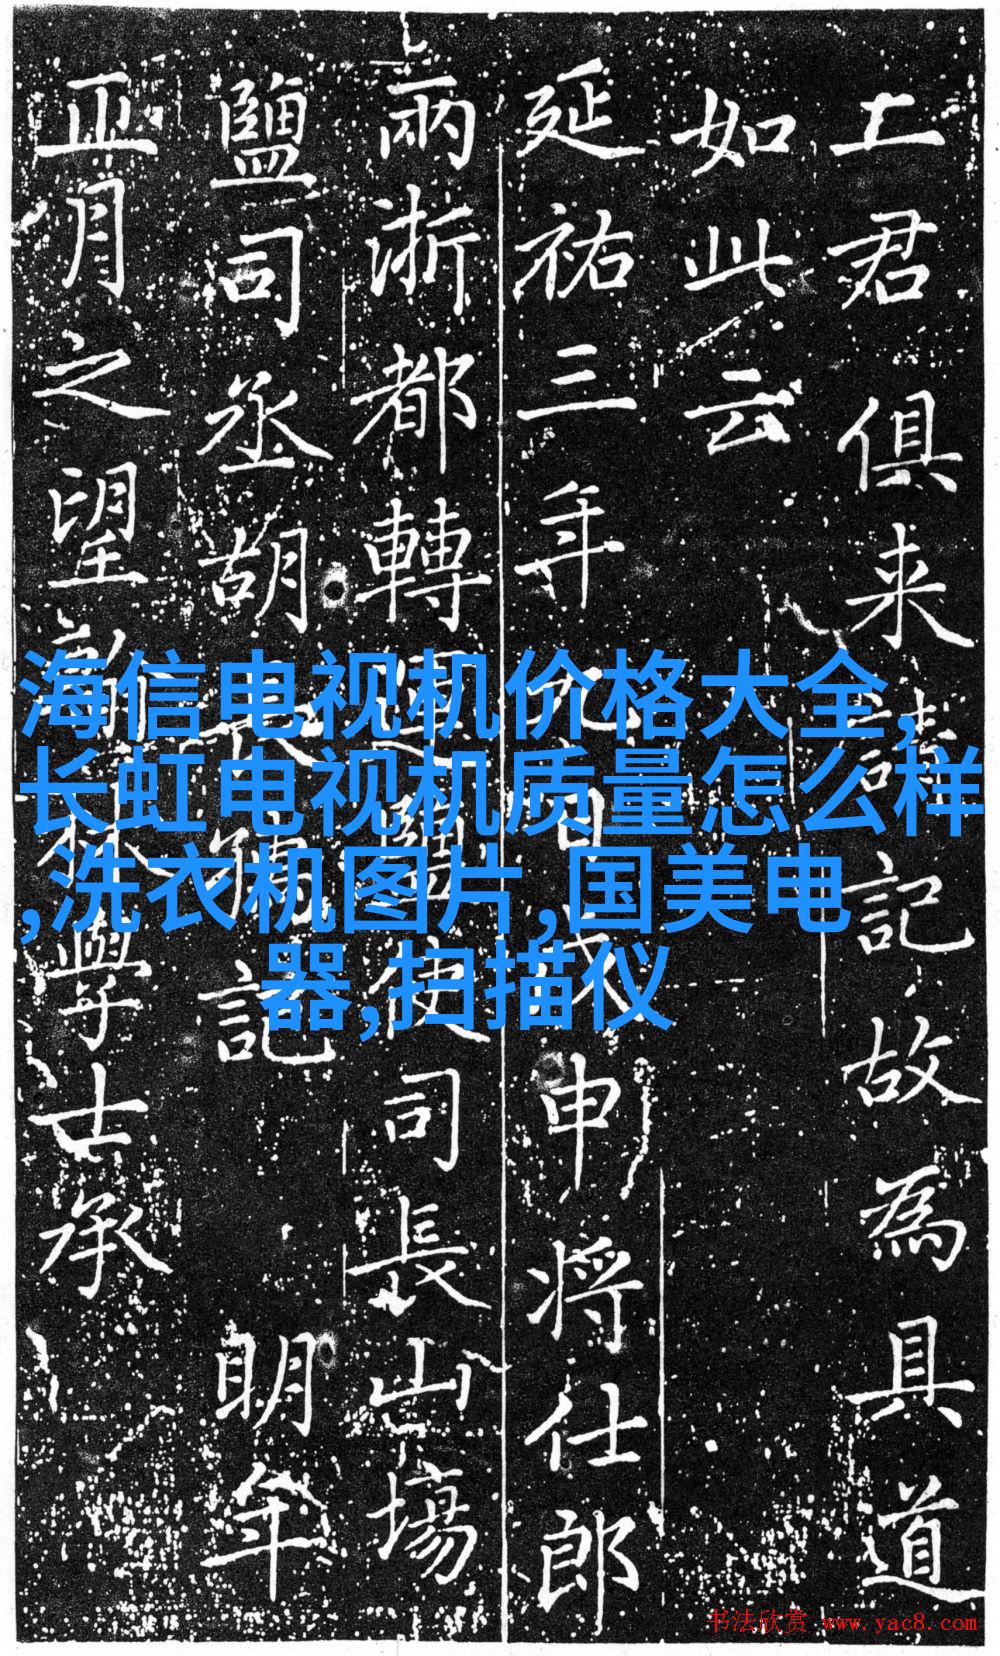 君俱来記故為具道
如此云
延祐三年月申将仕郎
兩浙都轉運鹽使司長山場
鹽司丞胡長孺記 明年
正月之望林學士承
海信电视机价格大全,
长虹电视机质量怎么样
,洗衣机图片,国美电
器,扫描仪
书法欣赏 www.yac8.com